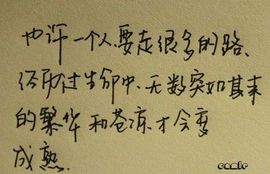 也许一个人,要走很多的路、
经历过生命中、无数突如其来
的繁华和苍凉.才会变
成熟.
comic